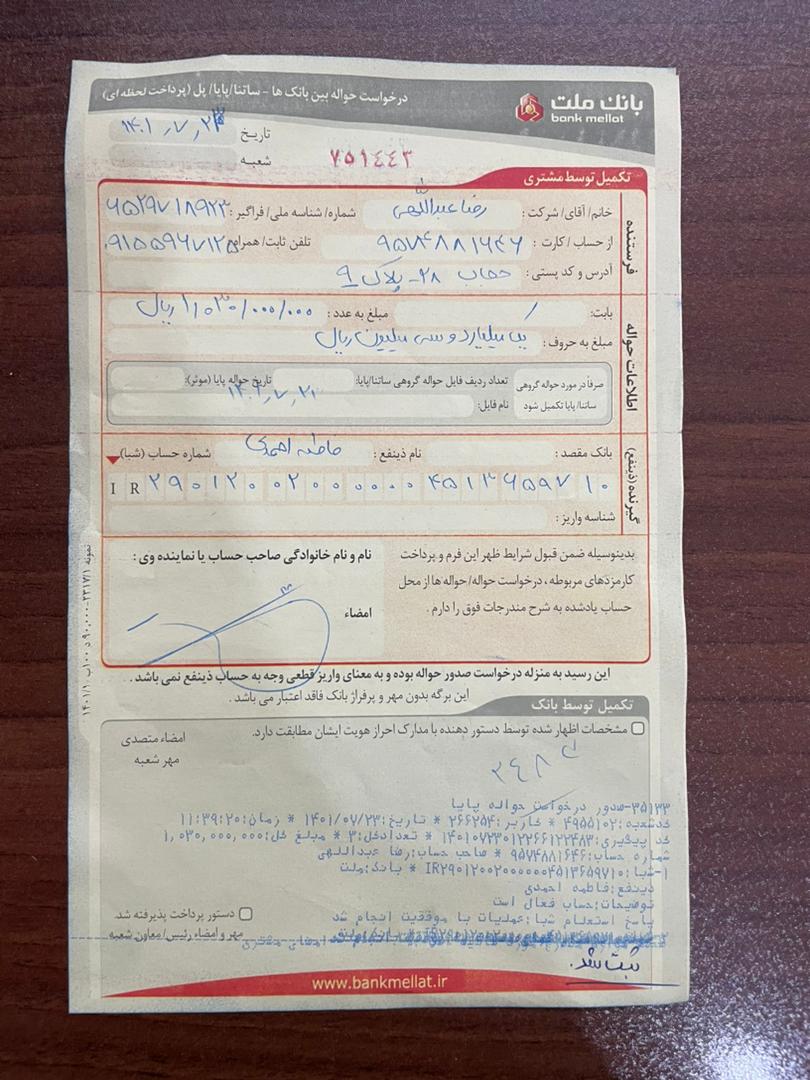 بانک ملت
bank mellat
درخواست حواله بین بانک ها - ساتنا/پایا/پل (پرداخت لحظه ای)
تاریخ ۱۴۰۱٫۷٫۲۳
شعبه
۷۵۱۴۴۳
تکمیل توسط مشتری
فرستنده
خانم/آقای/شرکت: رضا عبداللهی شماره/شناسه ملی/فراگیر: ۶۵۲۹۷۱۸۹۲۳
از حساب/کارت: ۹۵۷۴۸۸۱۶۴۶ تلفن ثابت/همراه: ۰۹۱۵۵۹۶۷۱۲۵
آدرس و کد پستی: حجاب ۲۸- پلاک ۹
اطلاعات حواله
بابت: / مبلغ به عدد: ۱٫۰۳۰/۰۰۰/۰۰۰ ریال
مبلغ به حروف: یک میلیارد و سی میلیون ریال
صرفاً در مورد حواله گروهی ساتنا/پایا تکمیل شود
تعداد ردیف فایل حواله گروهی ساتنا/پایا: تاریخ حواله پایا (موثر):
نام فایل:
گیرنده (ذینفع)
بانک مقصد: نام ذینفع: فاطمه احمدی شماره حساب (شبا)
IR ۲۹۰۱۲۰۰۲۰۰۰۰۰۰۴۵۱۳۶۵۹۷۱۰
شناسه واریز:
بدینوسیله ضمن قبول شرایط ظهر این فرم و پرداخت
کارمزدهای مربوطه، درخواست حواله/حواله ها از محل
حساب یادشده به شرح مندرجات فوق را دارم.
نام و نام خانوادگی صاحب حساب یا نماینده وی:
امضاء
این رسید به منزله درخواست صدور حواله بوده و به معنای واریز قطعی وجه به حساب ذینفع نمی باشد.
این برگه بدون مهر و پرفراژ بانک فاقد اعتبار می باشد.
تکمیل توسط بانک
مشخصات اظهار شده توسط دستور دهنده با مدارک احراز هویت ایشان مطابقت دارد.
امضاء متصدی
مهر شعبه
۳۵۱۳۳-صدور درخواست حواله پایا
کدشعبه:۴۹۵۵۱۰۲ * کاربر:۲۶۶۲۵۴ * تاریخ:۱۴۰۱/۰۷/۲۳ * زمان:۱۱:۳۹:۲۰
کد پیگیری:۱۴۰۱۰۷۲۳۰۱۲۲۶۶۱۲۲۴۸۳ * تعدادکل:۳ * مبلغ کل:۱,۰۳۰,۰۰۰,۰۰۰
شماره حساب:۹۵۷۴۸۸۱۶۴۶ * صاحب حساب:رضا عبداللهی
۱-شبا:IR۲۹۰۱۲۰۰۲۰۰۰۰۰۰۴۵۱۳۶۵۹۷۱۰ * بانک:ملت
ذینفع:فاطمه احمدی
توضیحات:حساب فعال است
پاسخ استعلام شبا:عملیات با موفقیت انجام شد
دستور پرداخت پذیرفته شد.
مهر و امضاء رئیس/معاون شعبه
ثبت شد.
www.bankmellat.ir